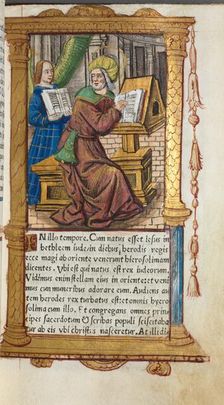 IN illo tempore. Cum natus esset iesus in
bethleem iude, in diebus, herodis regis
ecce magi ab oriente venerunt hierosolimam
dicentes. Vbi est qui natus est rex iudeorum.
Vidimus enim stellam eius in oriente: et veni
mus cum muneribus adorare eum. Audiens au
tem herodes rex turbatus est et omnis hiero
solima cum illo. Et congregans omnes prin
cipes sacerdotum & scribas populi sciscitaba
tur ab eis vbi christus nasceretur. At illi di